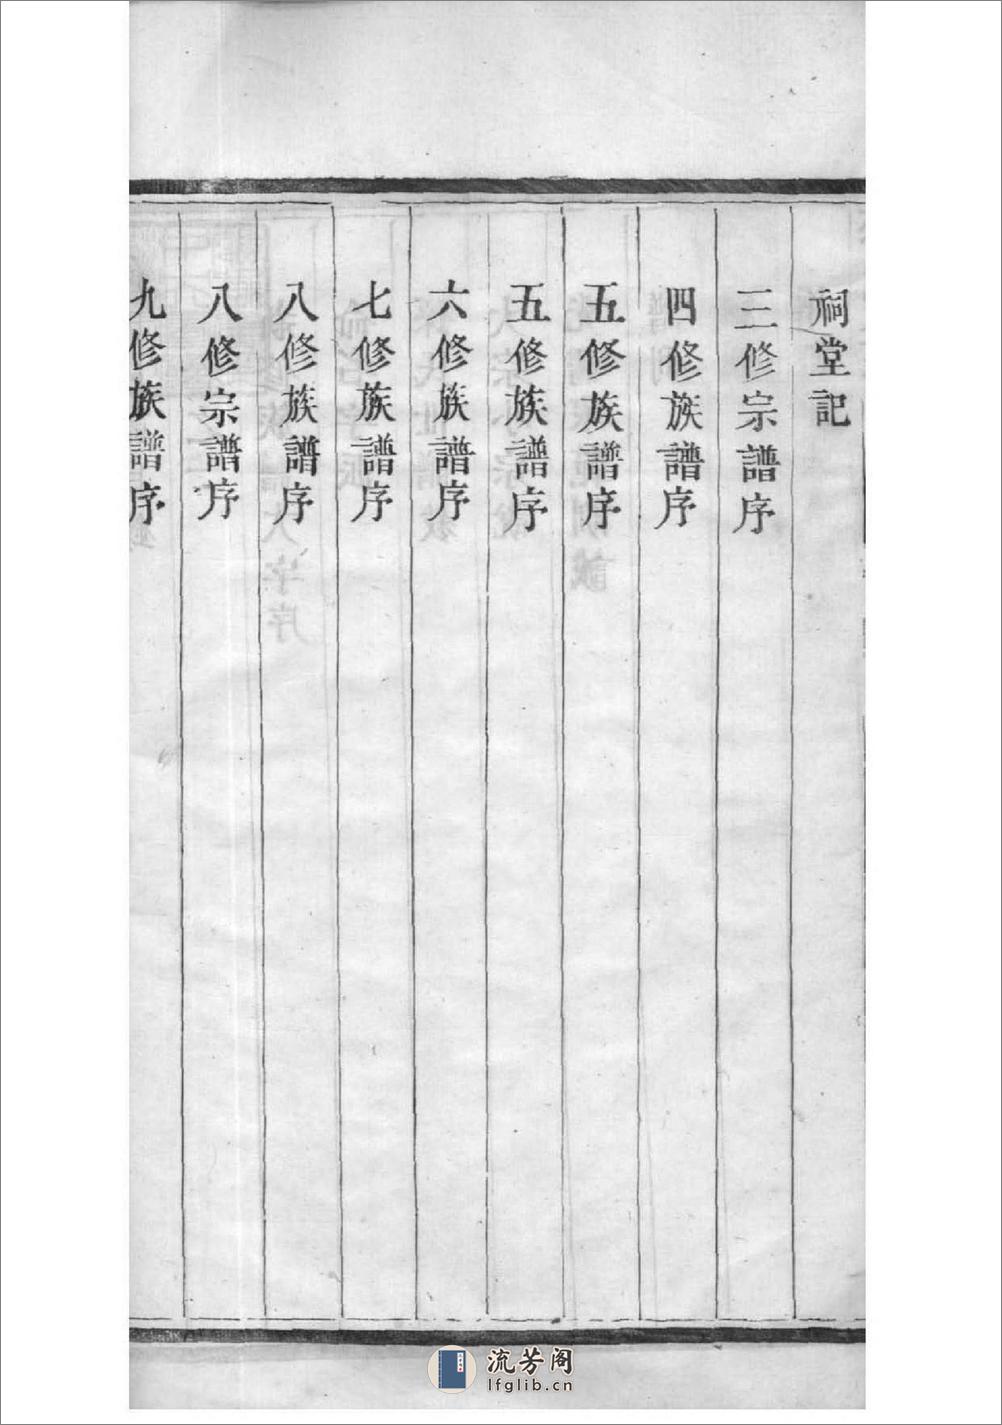 祠堂記
三修宗譜序
四修族譜序
五修族譜序
五修族譜序
六修族譜序
七修族譜序
八修族譜序
八修宗譜序
九修族譜序
流芳阁
lfglib.cn